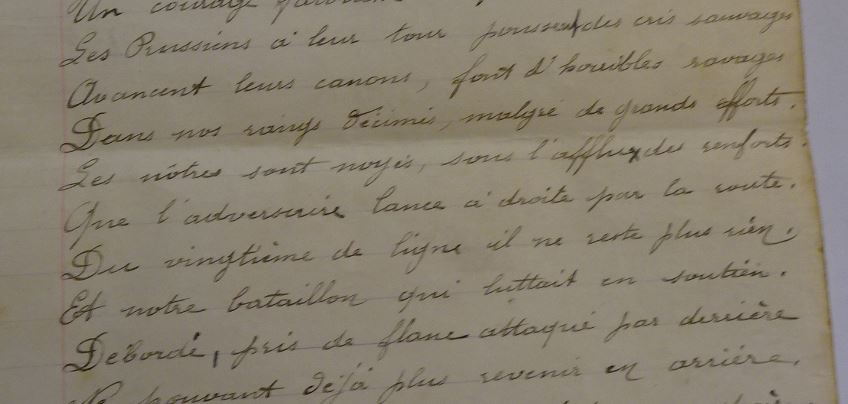 Un courage
Les Prussiens à leur tour poussent des cris sauvages
Avancent leurs canons, font d'horribles ravages
Dans nos rangs décimés, malgré de grands efforts.
Les nôtres sont noyés, sous l'afflux des renforts.
Que l'adversaire lance à droite par la route.
Du vingtième de ligne il ne reste plus rien.
Et notre bataillon qui luttait en soutien.
Débordé, pris de flanc attaqué par derrière
Ne pouvant déjà plus revenir en arrière.